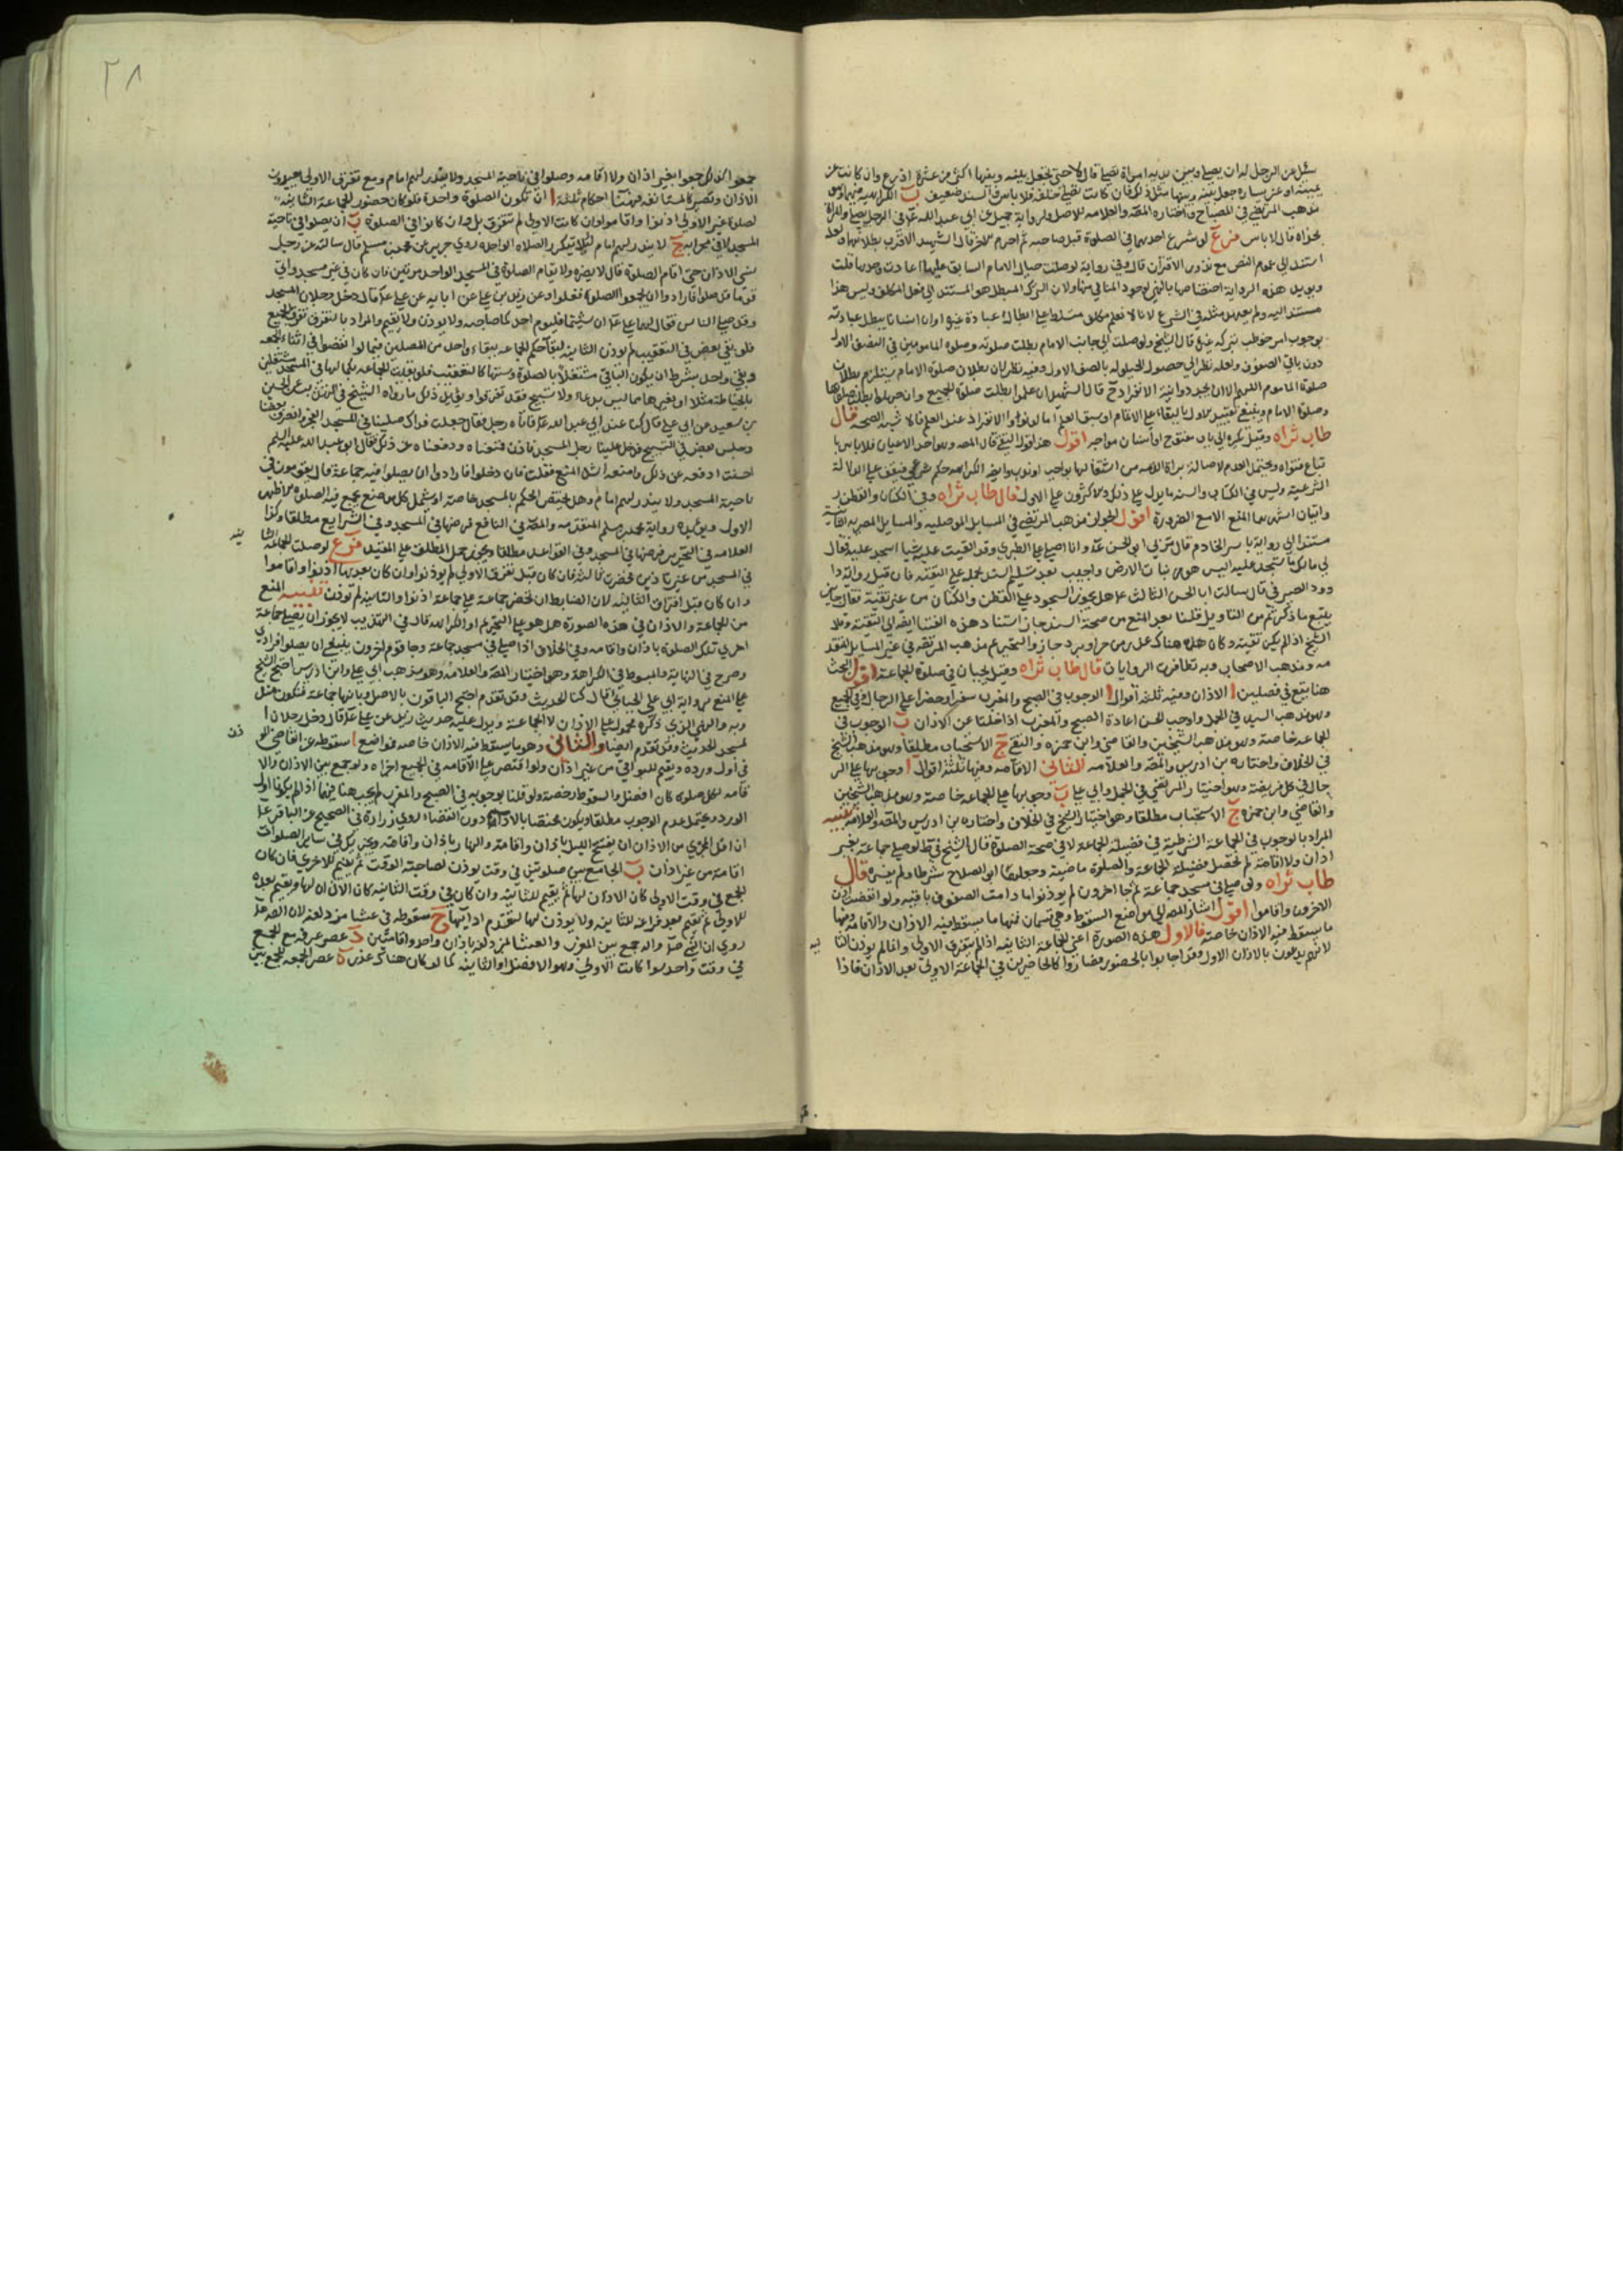 سئل عن الرجل له ان يصلي وبين يديه امراة تصلي قال لا حتى يجعل بينه وبينها اكثر من عشرة اذرع وان كانت عن
يمينه او عن يساره جعل بينه وبينها مثل ذلك فان كانت تصلي خلفه فلا باس والسند ضعيف ب الكراهية
مذهب المرتضى في المصباح واختاره المصنف والعلامه للاصل ولرواية جميل عن ابي عبد الله في الرجل يصلي والمراة
بحذاه قال لا باس فرع لو شرع احدهما في الصلوة قبل صاحبه ثم احرم الاخر قال الشهيد الاقرب بطلانهما
استند الى عموم النص مع نذور الاقتران قال وفي رواية لو صلت حيال الامام السابق عليها اعادت وحدها قلت
ويويد هذه الرواية اختصاصها بالنهي
مستند اليه ولم يعهد مثله في الشرع لانا لا نعلم مكلف
بوجوب امر خوطب بتركه غيره قال الشيخ ولو صلت الى جانب الامام بطلت صلوته وصلوة المامومين في الصف الاول
دون باقي الصفوف
صلوة الماموم اللهم الا ان يجدد وانية الانفراد ح قال الشهيد ان علموا بطلت صلوة الجميع
وصلوة الامام وينبغي تقييد الاول بالبقاء على الائتمام او سبق العلم اما لو نووا الانفراد عند العلم فلا شبهة الصحة قال
طاب ثراه وقيل تكره الى باب مفتوح او انسان مواجه اقول
تباع فتواه ويحتمل العدم لاصالة براة الذمه من اشتغالها بواجب او ندب
الشرعية وليس في الكتاب والسنه ما يدل على ذلك والاكثرون على الاول قال طاب ثراه وفي الكتان والقطن
وايتان اشهرهما المنع الا مع الضرورة اقول الجواز مذهب المرتضى في المسايل الموصليه والمسايل المصريه
مستندا الى رواية ياسر الخادم قال مر بي ابو الحسن وانا اصلي على الطبري وقد القيت عليه شيا اسجد عليه فقال
لي مالك لا تسجد عليه اليس هو من نبات الارض واجيب بعد تسليم السند بحمله على التقيه فان قيل روى
وود الصيرفي قال سالت ابا الحسن الثالث هل يجوز السجود على القطن والكتان من غير تقية فقال جايز
بقي ما ذكرتم من التاويل قلنا بعد المنع من صحة السند جاز استناد هذه الفتيا ايضا الى التقية
الشيخ اذا لم يكن تقية وكان هناك عذر من حر او برد جاز والتحريم مذهب المرتضى في غير المسايل
مه ومذهب الاصحاب وبه تظافرت الروايات قال طاب ثراه وقيل يجبان في صلوة الجماعة اقول البحث
هنا يقع في فصلين ا الاذان وفيه ثلثة اقوال ا الوجوب في الصبح والمغرب سفرا وحضرا على الرجال
وهو مذهب السيد في الجمل واوجب الحسن اعادة الصبح والمغرب اذا خلتا عن الاذان ب الوجوب في
الجماعة خاصة وهو مذهب الشيخين والقاضي وابن حمزه والتقي ج الاستحباب مطلقا وهو مذهب الشيخ
في الخلاف واختاره بن ادريس والمصنف والعلامه الثاني الاقامه وفيها ثلثة اقوال ا وجوبها على الر
جال في كل فريضة وهو اختيار المرتضى في الجمل وابي علي ب وجوبها على الجماعه خاصة وهو مذهب الشيخين
والقاضي وابن حمزه ج الاستحباب مطلقا وهو اختيار الشيخ في الخلاف واختاره بن ادريس والمصنف والعلامه تنبيه
المراد بالوجوب في الجماعة الشرطية في فضيلة الجماعة لا في صحة الصلوة قال الشيخ في ط لو صلى جماعة بغير
اذان ولا اقامة لم تحصل فضيلة الجماعة والصلوة ماضية وجعلهما ابو الصلاح شرطا ولم يفسره قال
طاب ثراه ولو صلى في مسجد جماعة ثم جا اخرون لم يوذنوا ما دامت الصفوف باقيه ولو انفضت اذن
الاخرون واقاموا اقول اشار المصنف الى مواضع السقوط وهي قسمان فمنها ما يسقط فيه الاذان والاقامة ومنها
ما يسقط فيه الاذان خاصة فالاول هذه الصورة اعني الجماعة الثانيه اذا لم تتفرق الاولى وانما لم يوذن الثا
نيه
لانهم يدعون بالاذان الاول وقد اجابوا بالحضور فصاروا كالحاضرين في الجماعة الاولى بعد الاذان فاذا
٢٨
جمعوا بغير اذان ولا اقامه وصلوا في ناحية المسجد ولا يبدر لهم امام ومع تفرق الاولى يعيدون
الاذان وتصير كالمستانفه فهنا احكام ثلثة ا ان تكون الصلوة واحدة فلو كان حضور الجماعة الثانيه
لصلوة غير الاولى اذنوا واقاموا وان كانت الاولى لم تتفرق بل وان كانوا في الصلوة ب ان يصلوا في ناحية
المسجد لا في محرابه ج لا يبدر لهم امام لئلا يتكرر الصلاة الواحدة روى حريز عن محمد بن مسلم قال سالته عن رجل
نسي الاذان حتى اقام الصلوة قال لا يضره ولا يقام الصلوة في المسجد الواحد مرتين فان كان في غير مسجد واتى
قوما قد صلوا فارادوا ان يجمعوا الصلوة فعلوا وعن زيد بن علي عن ابايه عن علي قال دخل رجلان المسجد
وقد صلى الناس فقال لهما علي ان شيتما فليوم احدكما صاحبه ولا يوذن ولا يقيم والمراد بالتفرق تفرق الجميع
فلو بقي بعض في التعقيب لم يوذن الثانيه لبقا حكم الجماعه ببقاء واحد من المصلين فيما لو انفضوا في اثناء الجمعه
وبقي واحد بشرط ان يكون الباقي مشتغلا بالصلوة وسننها كالتعقيب
بالخياطة مثلا او بغيرها مما ليس بدعاء ولا تسبيح فقد تفرقوا ويويد ذلك ما رواه الشيخ في التهذيب عن الحسين
بن سعيد عن ابي علي قال كنا عند ابي عبد الله فاتاه رجل فقال جعلت فداك صلينا في المسجد الفجر وانصرف بعضنا
وجلس بعض في التسبيح فدخل علينا رجل المسجد فاذن فمنعناه ودفعناه عن ذلك فقال ابو عبد الله عليه السلم
احسنت ادفعه عن ذلك وامنعه اشد المنع فقلت فان دخلوا فارادوا ان يصلوا فيه جماعة قال يقومون في
ناحية المسجد ولا يبدر لهم امام وهل يختص الحكم بالمسجد خاصة او يشمل كل موضع يجمع فيه الصلوة الاظهر
الاول ويويده رواية محمد بن مسلم المتقدمه والمصنف في النافع فرضها في المسجد وفي الشرايع مطلقا وكذا
العلامه في التحرير فرضها في المسجد وفي القواعد مطلقا ويجوز حمل المطلق على المقيد فرع لو صلت الجماعة الثا
نيه
في المسجد من غير تاذين فحضرت ثالثه فان كان قبل تفرق الاولى لم يوذنوا وان كان بعدها اذنوا واقاموا
وان كان قبل افتراق الثانيه لان الضابط ان تحضر جماعة على جماعة اذنوا والثانيه لم توذن تنبيه المنع
من الجماعة والاذان في هذه الصورة هل هو على التحريم او الكراهه قال في التهذيب لا يجوز ان يصلي جماعة
اخرى تلك الصلوة باذان واقامه وفي الخلاف اذا صلى في مسجد جماعة وجا قوم اخرون ينبغي ان يصلوا فرادى
وصرح في النهاية والمبسوط في الكراهة وهو اختيار المصنف والعلامه وهو مذهب ابي علي وابن ادريس احتج الشيخ
على المنع برواية ابي علي الجبايي قال كنا الحديث وقد تقدم احتج الباقون بالاصل وبانها جماعة فتكون مند
وبه والنهي الذي ذكره محمول على الاذان لا الجماعة ويدل عليه حديث زيد عن علي قال دخل رجلان ا
لمسجد الحديث وقد تقدم ايضا والثاني وهو ما يسقط فيه الاذان خاصه فمواضع ا سقوطه عن القاضي
في اول ورده ويقيم للبواقي من غير اذان ولو اقتصر على الاقامه في الجميع اجزاه ولو جمع بين الاذان والا
قامه لكل صلوة كان افضل والسقوط رخصة ولو قلنا بوجوبه في الصبح والمغرب لم يجب هنا
الورد ويحتمل عدم الوجوب مطلقا ويكون مختصا بالاداء دون القضا روى زرارة في الصحيح عن الباقر
ان اقل المجزي من الاذان ان يفتتح الليل باذان واقامة والنهار باذان واقامة ويجزيك في ساير الصلوات
اقامة من غير اذان ب الجامع بين صلوتين في وقت يوذن لصاحبة الوقت ثم يقيم للاخرى فان كان
الجمع في وقت الاولى كان الاذان لها ثم يقيم للثانيه وان كان في وقت الثانيه كان الاذان لها ويقيم بعده
للاولى ثم يقيم بعد فراغه للثانيه ولا يوذن لها لتقدم اذانها ج سقوطه في عشا مزدلفه لان
روى ان النبي جمع بين المغرب والعشا المزدلفه باذان واحد واقامتين د عصر عرفه مع الجمع
في وقت واحد سوا كانت الاولى وهو الافضل او الثانيه كما لو كان هناك عذر ه عصر الجمعه